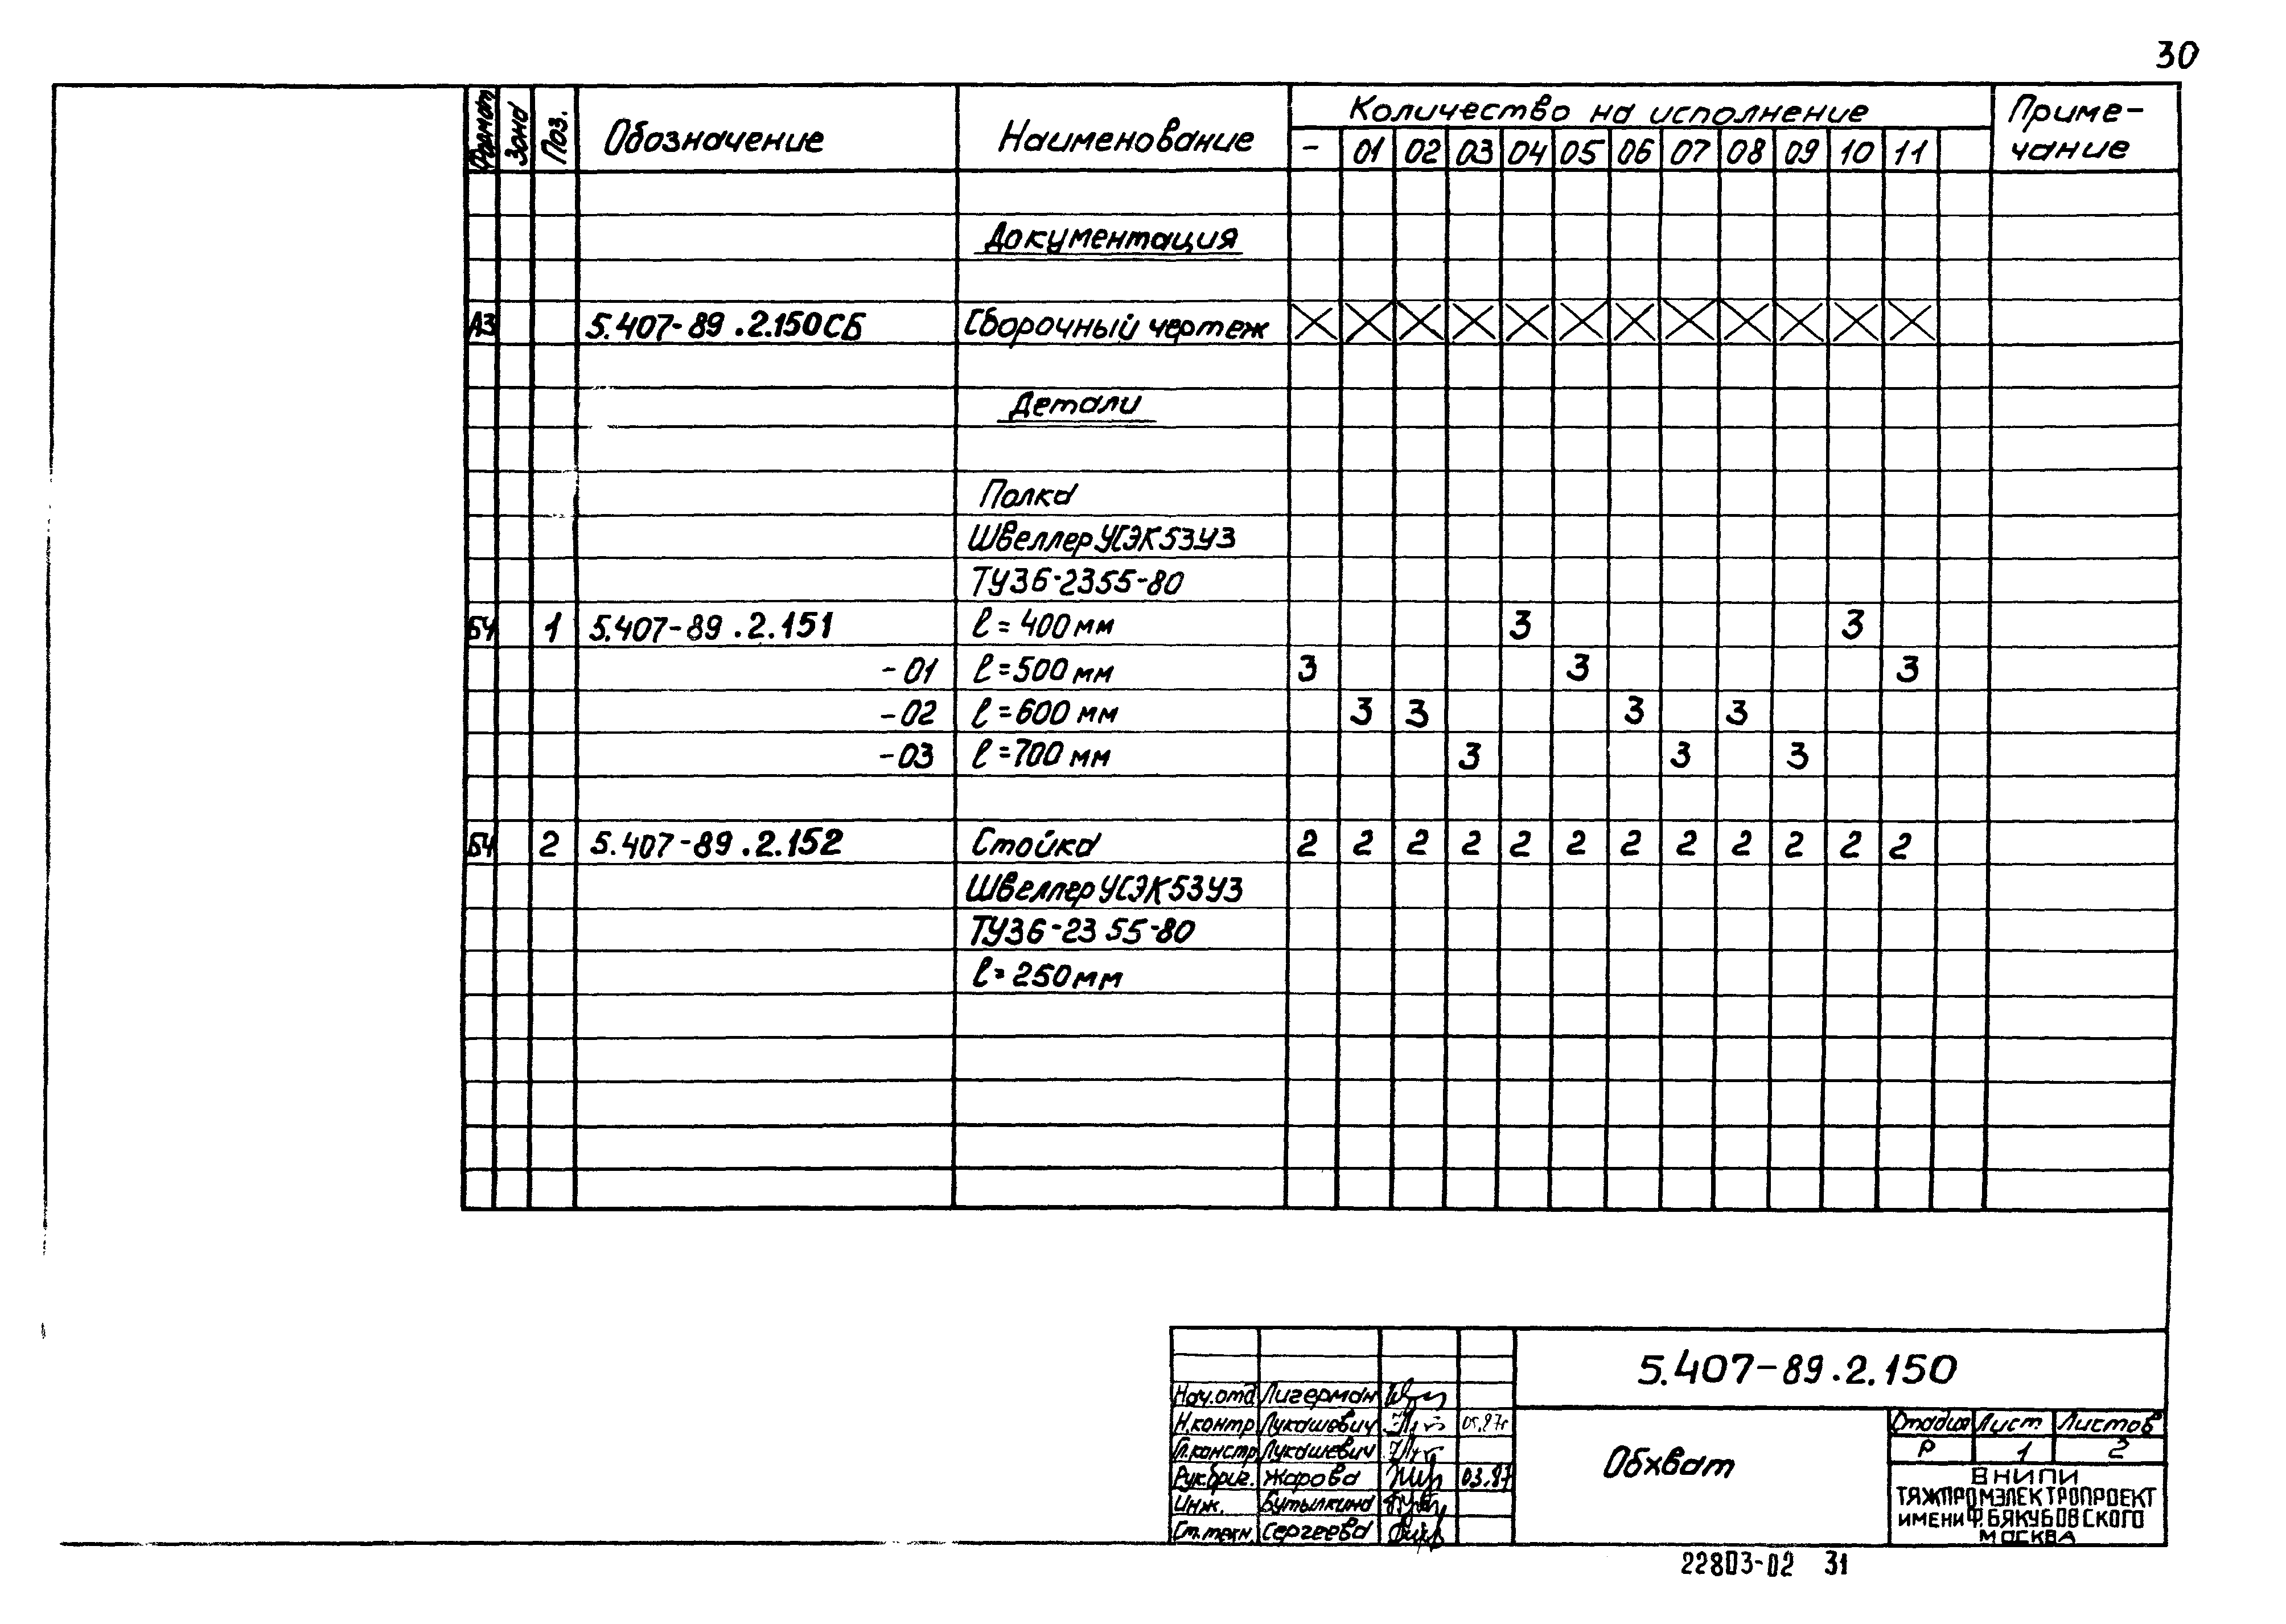 30
Формат Зона Поз. Обозначение Наименование Количество на исполнение Приме-
- 01 02 03 04 05 06 07 08 09 10 11 чание
Документация
А3 5.407-89.2.150СБ Сборочный чертеж
Детали
Полка
Швеллер УСЭК53У3
ТУ36-2355-80
БЧ 1 5.407-89.2.151 ℓ=400мм 3 3
-01 ℓ=500мм 3 3 3
-02 ℓ=600мм 3 3 3 3
-03 ℓ=700мм 3 3 3
БЧ 2 5.407-89.2.152 Стойка 2 2 2 2 2 2 2 2 2 2 2 2
Швеллер УСЭК53У3
ТУ36-2355-80
ℓ=250мм
5.407-89.2.150
Нач.отд Лигерман
Н.контр Лукашевич 05.87г
Гл.констр Лукашевич
Рук.бриг. Жарова 03.87
Инж. Бутылкина
Ст.техн. Сергеева
Обхват
Стадия Лист Листов
Р 1 2
ВНИПИ
ТЯЖПРОМЭЛЕКТРОПРОЕКТ
ИМЕНИ Ф.Б.ЯКУБОВСКОГО
МОСКВА
22803-02 31